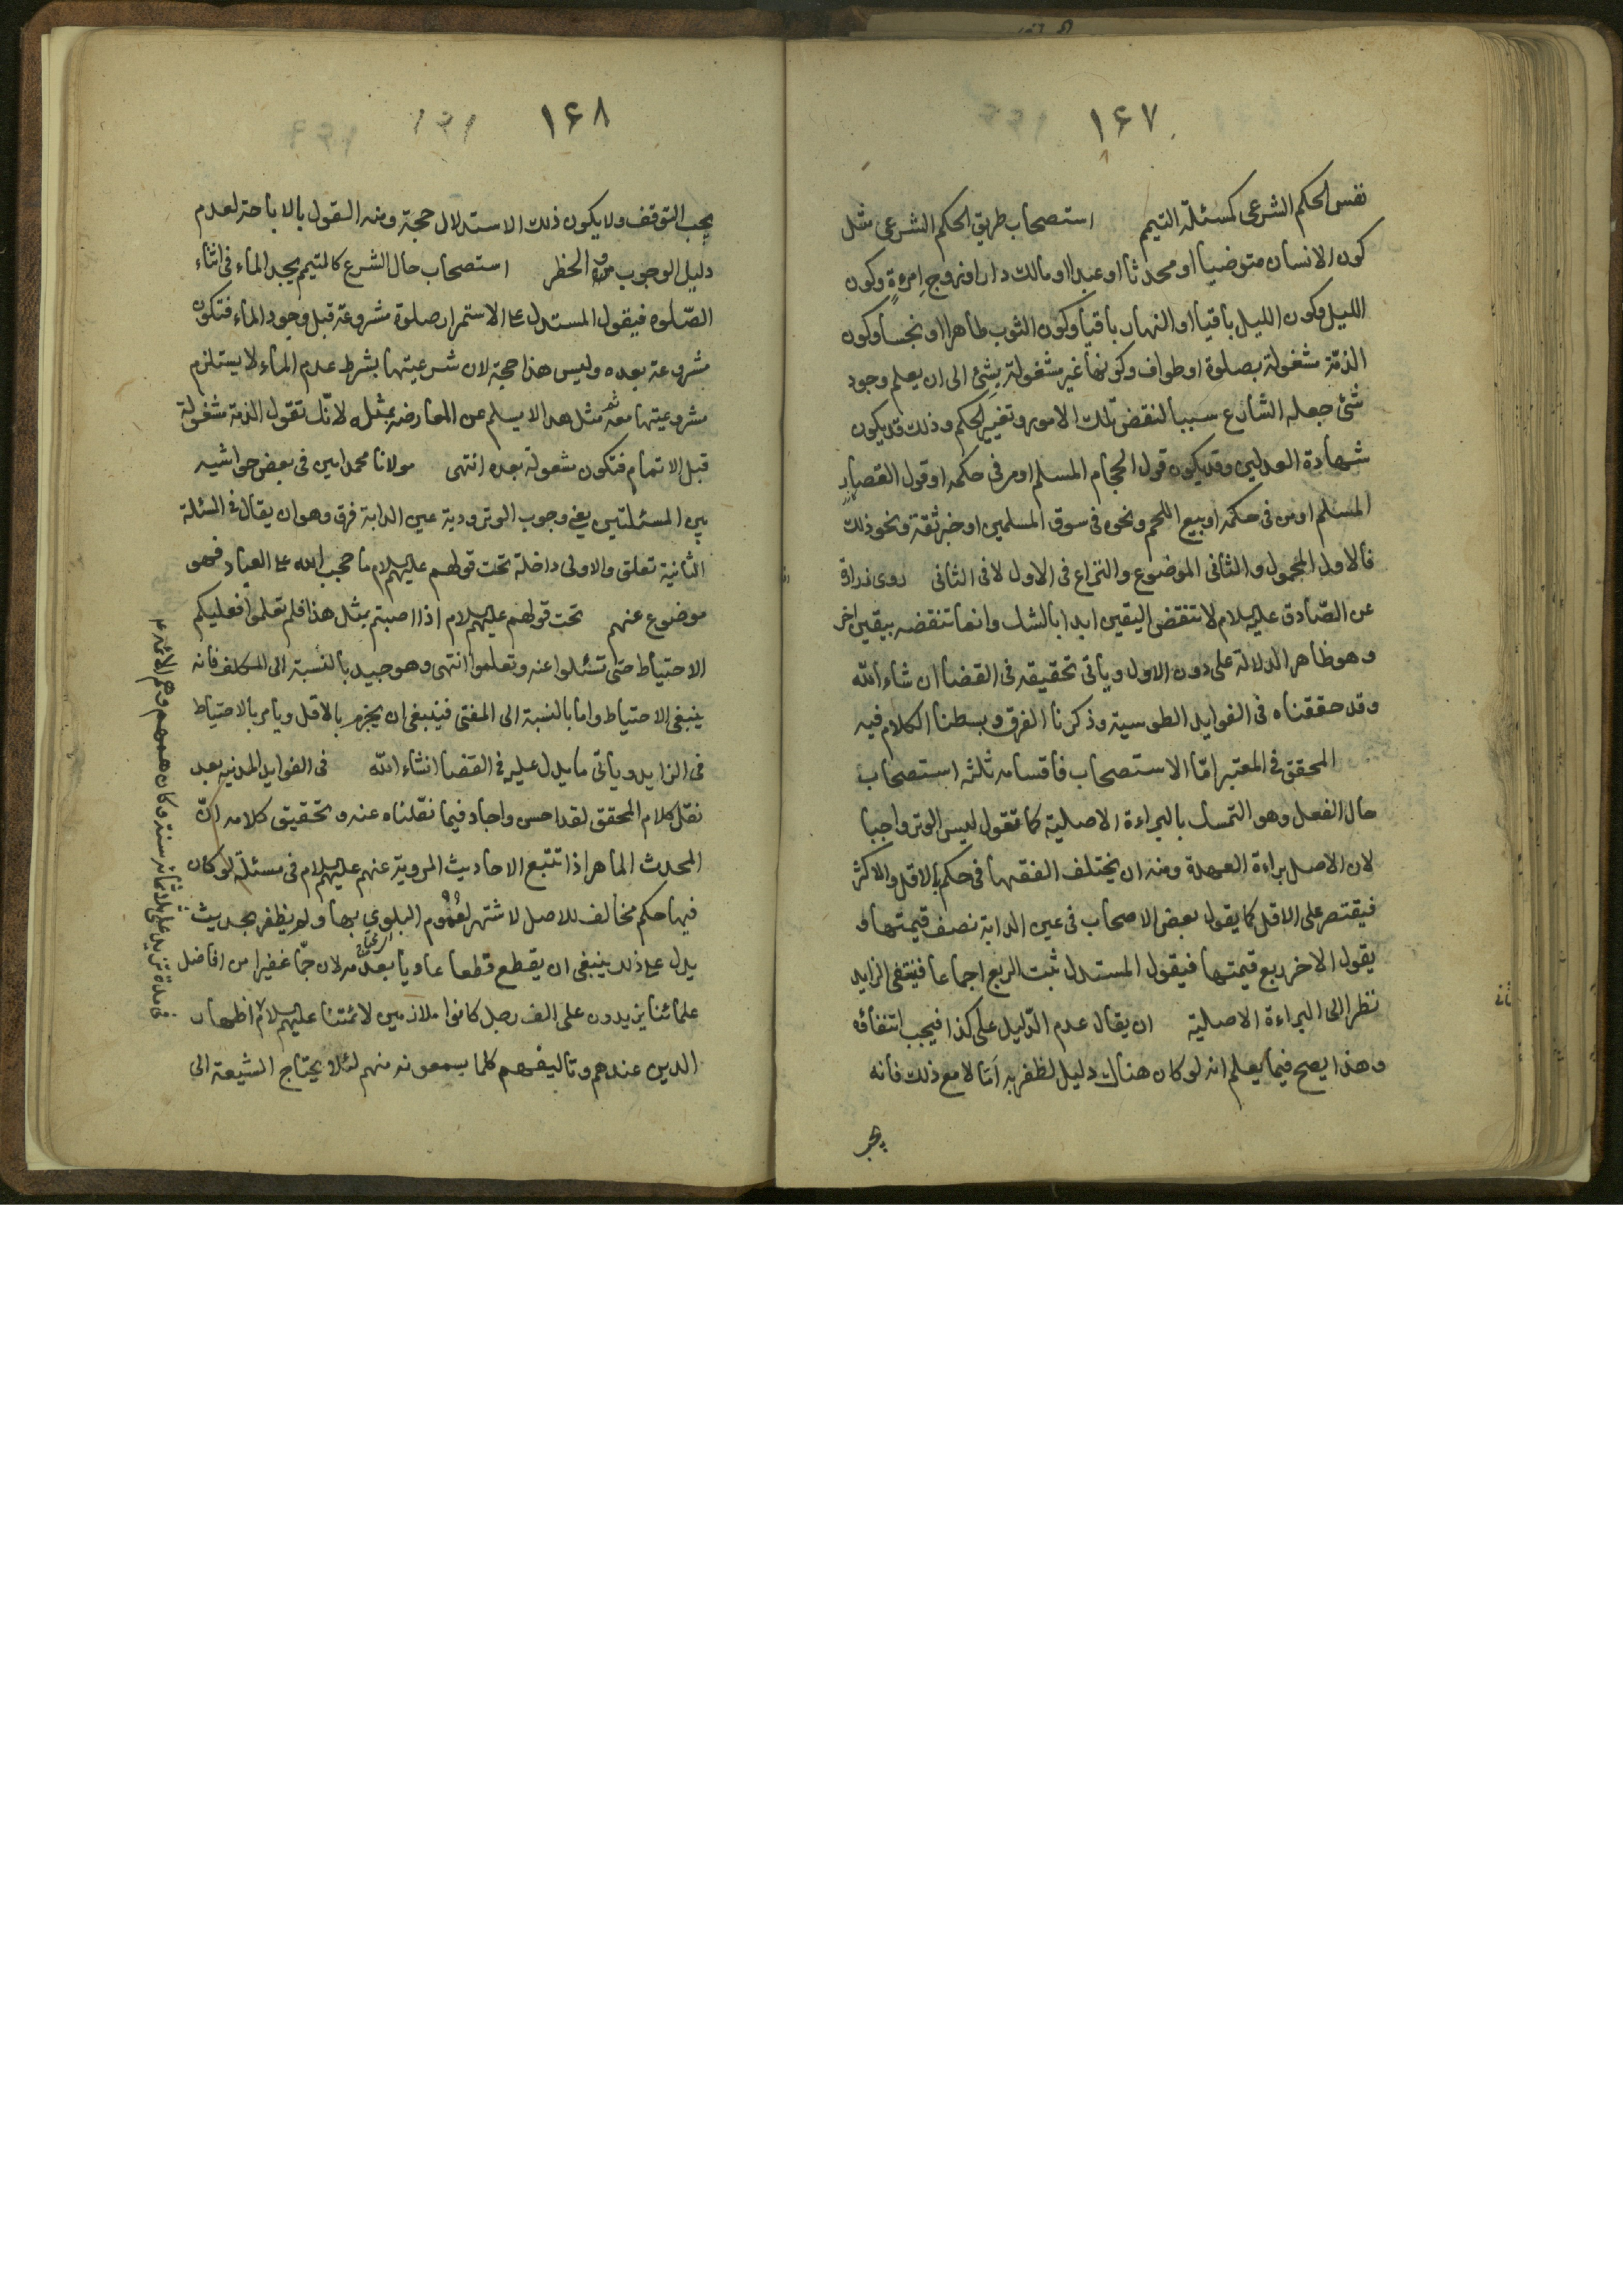 ۱۶۷
نفس الحكم الشرعى كمسئلة التيمم استصحاب طريق الحكم الشرعى مثل
كون الانسان متوضيا او محدثا او عبدا او مالك دار او زوج امرءة وكون
الليل وكون الليل باقيا او النهار باقيا وكون الثوب طاهرا او نجسا وكون
الذمّة مشغولة بصلوة او طواف وكونها غير مشغولة بشئ الى ان يعلم وجود
شئ جعله الشارع سببا لنقض تلك الامور وتغيير الحكم وذلك قد يكون
شهادة العدلين وقد يكون قول الحجام المسلم او من فى حكمه او قول القصار
المسلم او من فى حكمه او بيع اللحم ونحوه فى سوق المسلمين او خبر ثقة ونحو ذلك
فالاول المحمول والثانى الموضوع والنزاع فى الاول لا فى الثانى روى زرارة
عن الصّادق عليه السلام لا تنقض اليقين ابدا بالشك وانما تنقضه بيقين اخر
وهو ظاهر الدلالة على دون الاول وياتى تحقيقه فى القضا ان شاء الله
وقد حققناه فى الفوايد الطوسية وذكرنا الفرق وبسطنا الكلام فيه
المحقق فى المعتبر امّا الاستصحاب فاقسامه ثلثه استصحاب
حال الفعل وهو التمسك بالبراءة الاصلية كما تقول ليس الوتر واجبا
لان الاصل براءة العهدة ومنه ان يختلف الفقهاء فى حكم بالاقل والاكثر
فيقتصر على الاقل كما يقول بعض الاصحاب فى عين الدابة نصف قيمتها و
يقول الاخر ربع قيمتها فيقول المستدل ثبت الربع اجماعا فينتفى الزايد
نظرا الى البراءة الاصلية ان يقال عدم الدّليل على كذا فيجب انتفائه
وهذا يصح فيما يعلم انه لو كان هناك دليل لظفر به امّا لا مع ذلك فانه
يجب
۱۶۸
يجب التوقف ولا يكون ذلك الاستدلال حجة ومنه القول بالاباحة لعدم
دليل الوجوب والحظر استصحاب حال الشرع كالمتيمم يجد الماء فى اثناء
الصّلوه فيقول المستدل على الاستمرار صلوة مشروعة قبل وجود الماء فتكون
مشروعة بعده وليس هذا حجة لان شرعيتها بشرط عدم الماء لا يستلزم
مشروعيتها معه ثم مثل هذا لا يسلم عن المعارضة بمثله لانّك تقول الذمة مشغولة
قبل الاتمام فتكون مشغولة بعده انتهى مولانا محمد امين فى بعض حواشيه
بين المسئلتين يعنى وجوب الوتر ودية عين الدابة فرق وهو ان يقال فى المسئلة
الثانية تعلق والاولى داخلة تحت قولهم عليهم السلام ما حجب الله على العباد فهو
موضوع عنهم تحت قولهم عليهم السلام اذا اصبتم بمثل هذا فلم تعلموا فعليكم
الاحتياط حتى تسئلوا عنه وتعلموا انتهى وهو جيد بالنسبة الى المكلف فانه
ينبغى الاحتياط واما بالنسبة الى المفتى فينبغى ان يجزم بالاقل ويامر بالاحتياط
فى الزايد وياتى ما يدل عليه فى القضا انشاء الله فى الفوايد المدنية بعد
نقل كلام المحقق لقد احسن واجاد فيما نقلناه عنه وتحقيق كلامه انّ
المحدث الماهر اذا تتبع الاحاديث المروية عنهم عليهم السلام فى مسئلة لو كان
فيها حكم مخالف للاصل لاشتهر لعموم البلوى بها ولم يظفر بحديث
يدل على ذلك ينبغى ان يقطع قطعا عاديا بعدمه لان جمّا غفيرا من افاضل
علمائنا يزيدون على الف رجل كانوا ملازمين لائمتنا عليهم السلام اظهار
الدين عندهم وتاليفهم كلما يسمعونه منهم لئلا يحتاج الشيعة الى
فى مدة تزيد على ثلاثمائة سنة وكان همهم وهم الائمة ع